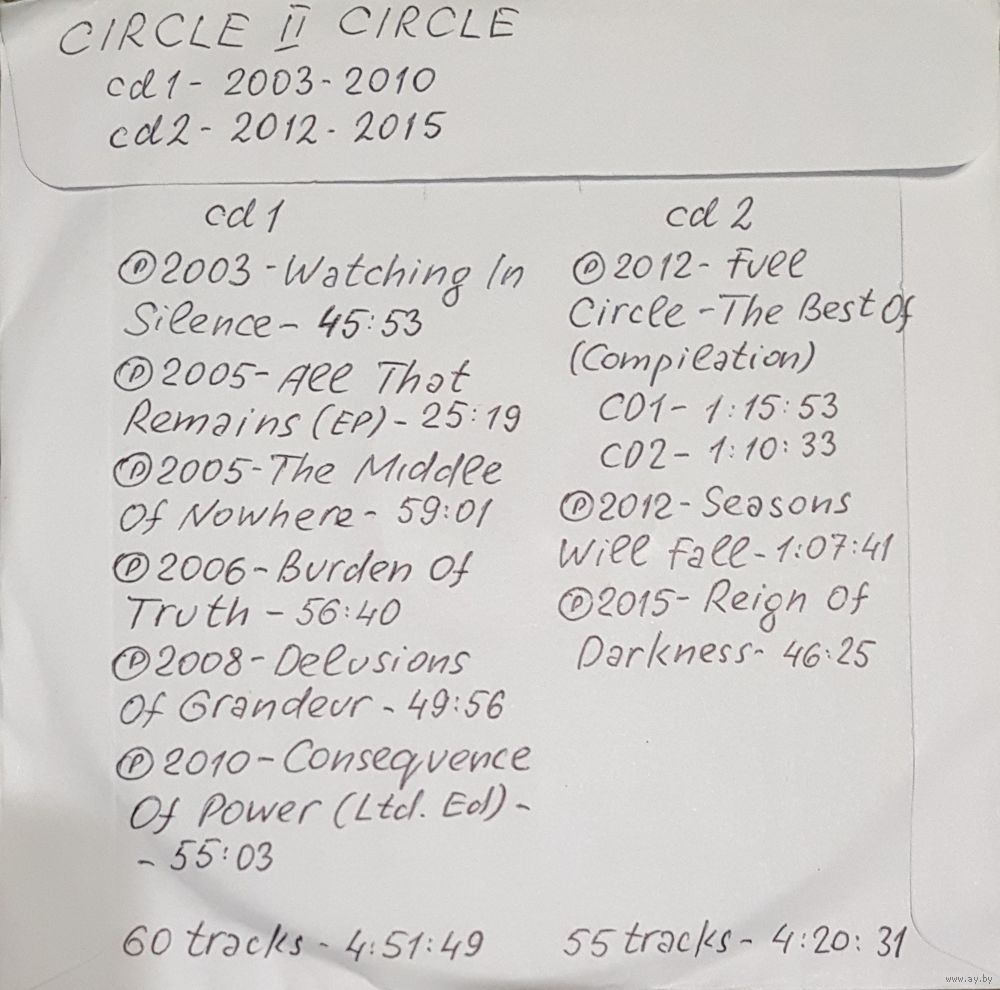 CIRCLE II CIRCLE
cd1- 2003-2010
cd2- 2012- 2015
cd1
Ⓟ2003-Watching In
Silence- 45:53
Ⓟ2005-All That
Remains (EP)- 25:19
Ⓟ2005-The Middle
Of Nowhere- 59:01
Ⓟ2006-Burden Of
Truth - 56:40
Ⓟ2008-Delusions
Of Grandeur - 49:56
Ⓟ2010-Consequence
Of Power (Ltd. Ed) -
- 55:03
60 tracks - 4:51:49
cd 2
Ⓟ2012- Full
Circle -The Best Of
(Compilation)
CD1- 1:15:53
CD2- 1:10:33
Ⓟ2012-Seasons
Will Fall-1:07:41
Ⓟ2015- Reign Of
Darkness- 46:25
55 tracks- 4:20:31
www.ay.by